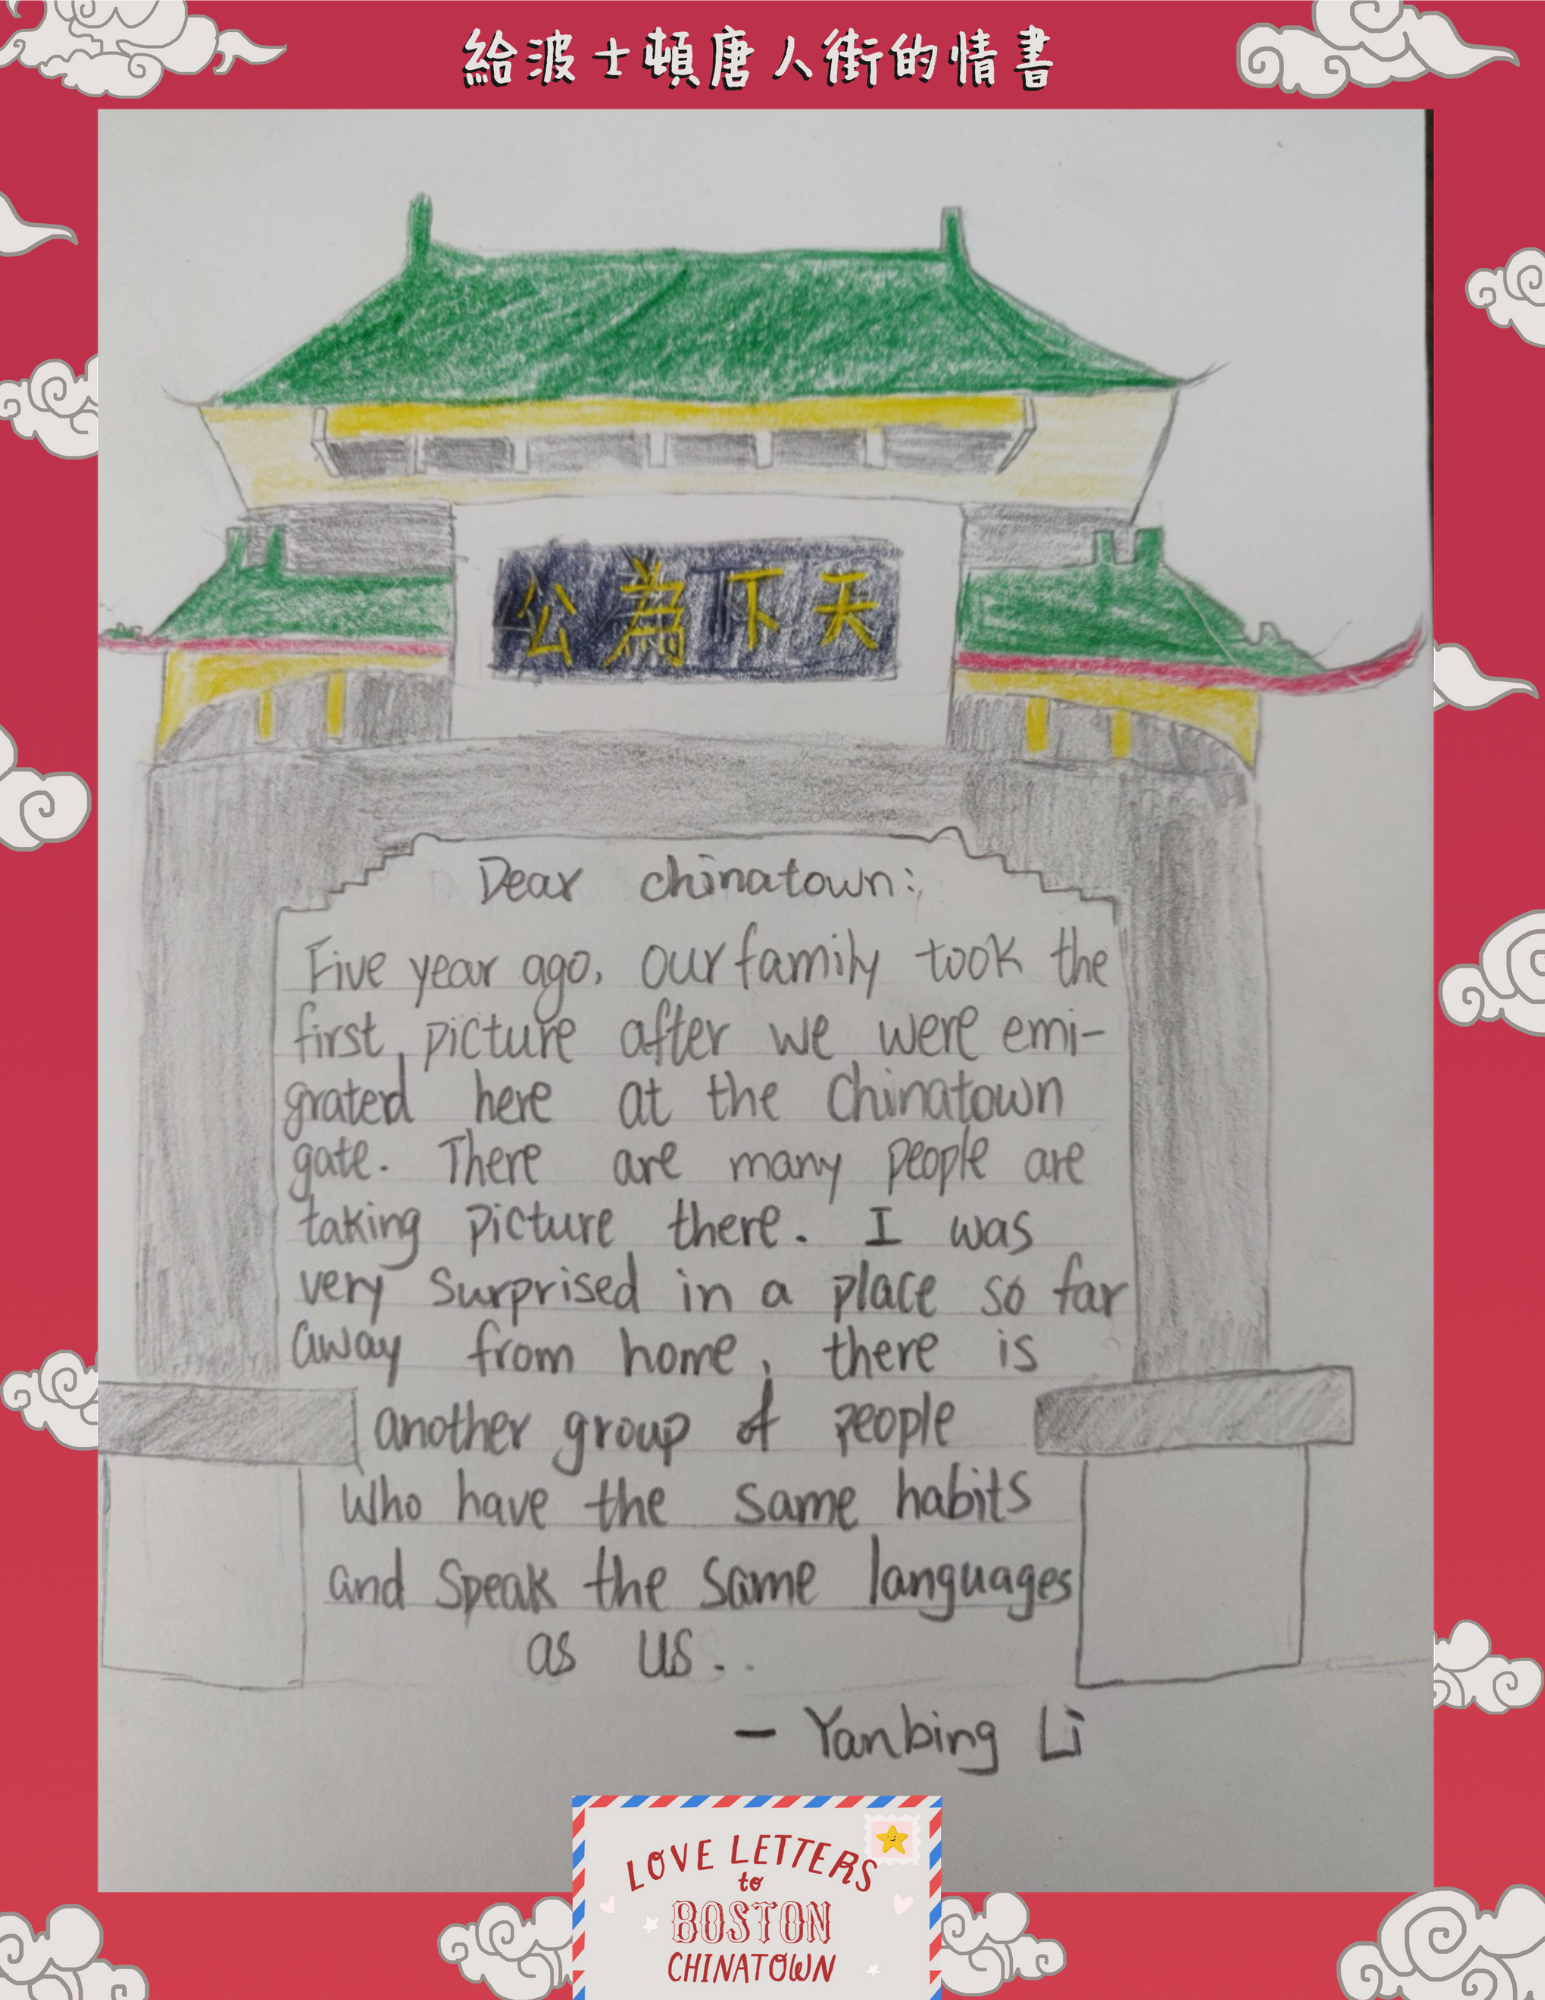 給波士頓唐人街的情書
公為下天
Dear chinatown:
Five year ago, our family took the
first picture after we were emi-
grated here at the Chinatown
gate. There are many people are
taking picture there. I was
very surprised in a place so far
away from home, there is
another group of people
who have the same habits
and speak the same languages
as us.
- Yanbing Li
LOVE LETTERS
to
BOSTON
CHINATOWN